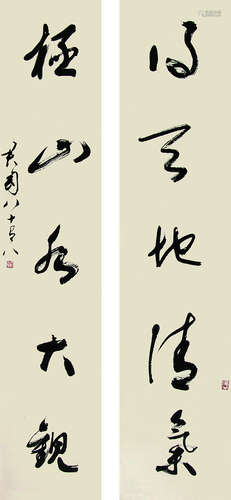 得天地清氣
極山水大觀
八十八